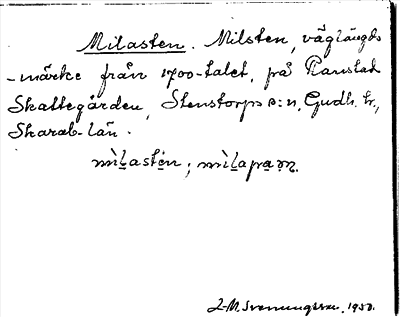 Milasten. Milsten, väglängds
-märke från 1700-talet, på Ranstad
Skattegården, Stenstorps s:n, Gudh. h.,
Skarab-län.
mìlastèn; mìlapaṇ.
J-M. Svenungsson. 1950.